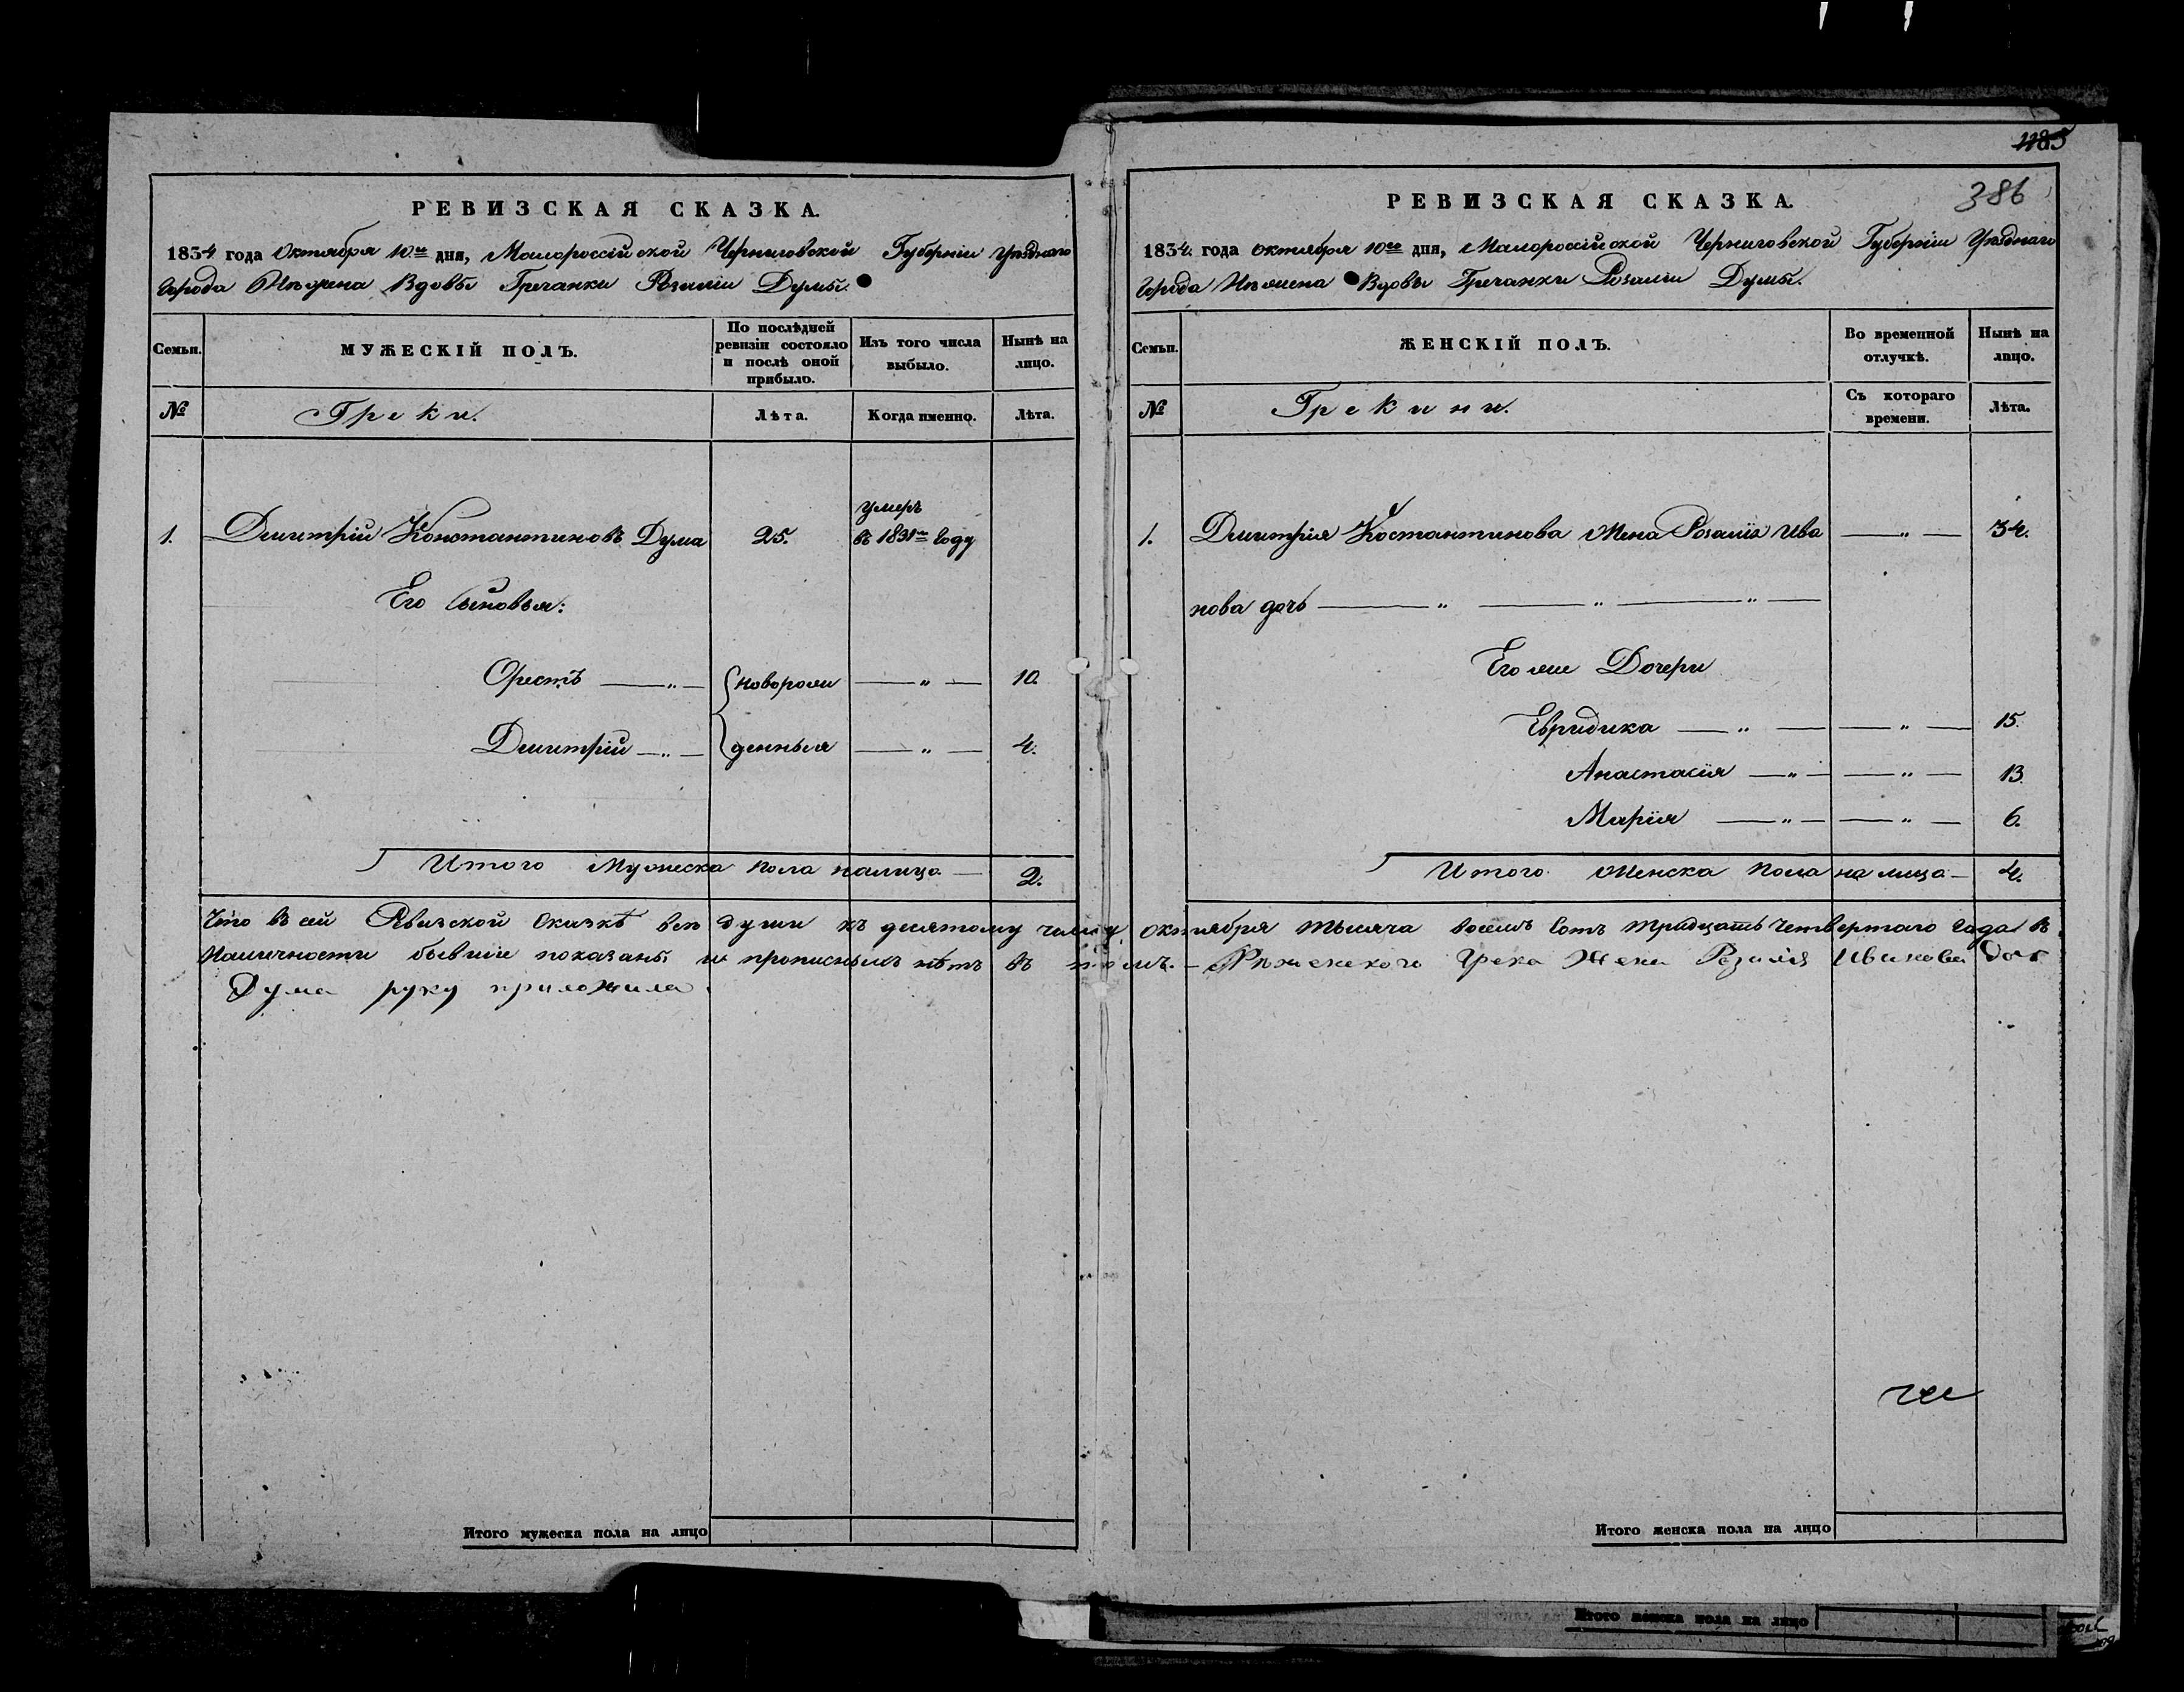 РЕВИЗСКАЯ СКАЗКА.
1834 года Октября 10го дня, Малороссійской Черниговской Губерніи Уѣзднаго
города Нѣжина Вдовы Гречанки Розаліи Думы.
Семьи.
МУЖЕСКІЙ ПОЛЪ.
По послѣдней ревизіи состояло и послѣ оной прибыло.
Изъ того числа выбыло.
Нынѣ на лицо.
№
Греки.
Лѣта.
Когда именно.
Лѣта.
1. Дмитрій Константиновъ Дума 25. умеръ въ 1831м году
Его Сыновья:
Орестъ — „ — новорож — „ — 10.
Дмитрій — „ — денныя — „ — 4.
Итого Мужеска пола налицо — 2.
Итого мужеска пола на лицо
1185
386
РЕВИЗСКАЯ СКАЗКА.
1834 года октября 10го дня, Малороссійской Черниговской Губерніи Уѣзднаго
города Нѣжена Вдовы Гречанки Розаліи Думы.
Семьи.
ЖЕНСКІЙ ПОЛЪ.
Во временной отлучкѣ.
Нынѣ на лицо.
№
Грекини.
Съ котораго времени.
Лѣта.
1. Дмитрія Костантинова Жена Розалія Ива — „ — 34.
нова дочь — „ — „ — „ —
Его же Дочери
Евридика — „ — — „ — 15.
Анастасія — „ — — „ — 13.
Марія — „ — — „ — 6.
Итого Женска пола на лицо — 4.
Что въ сей Ревизской Сказкѣ всѣ души къ десятому числу октября тысяча восемь сотъ тридцать четвертаго года въ
Наличности бывшие показаны и прописныхъ нѣтъ въ томъ. — Нѣженского Грека Жена Розалія Иванова Доч
Дума руку приложила.
Итого женска пола на лицо
Итого женска пола на лицо